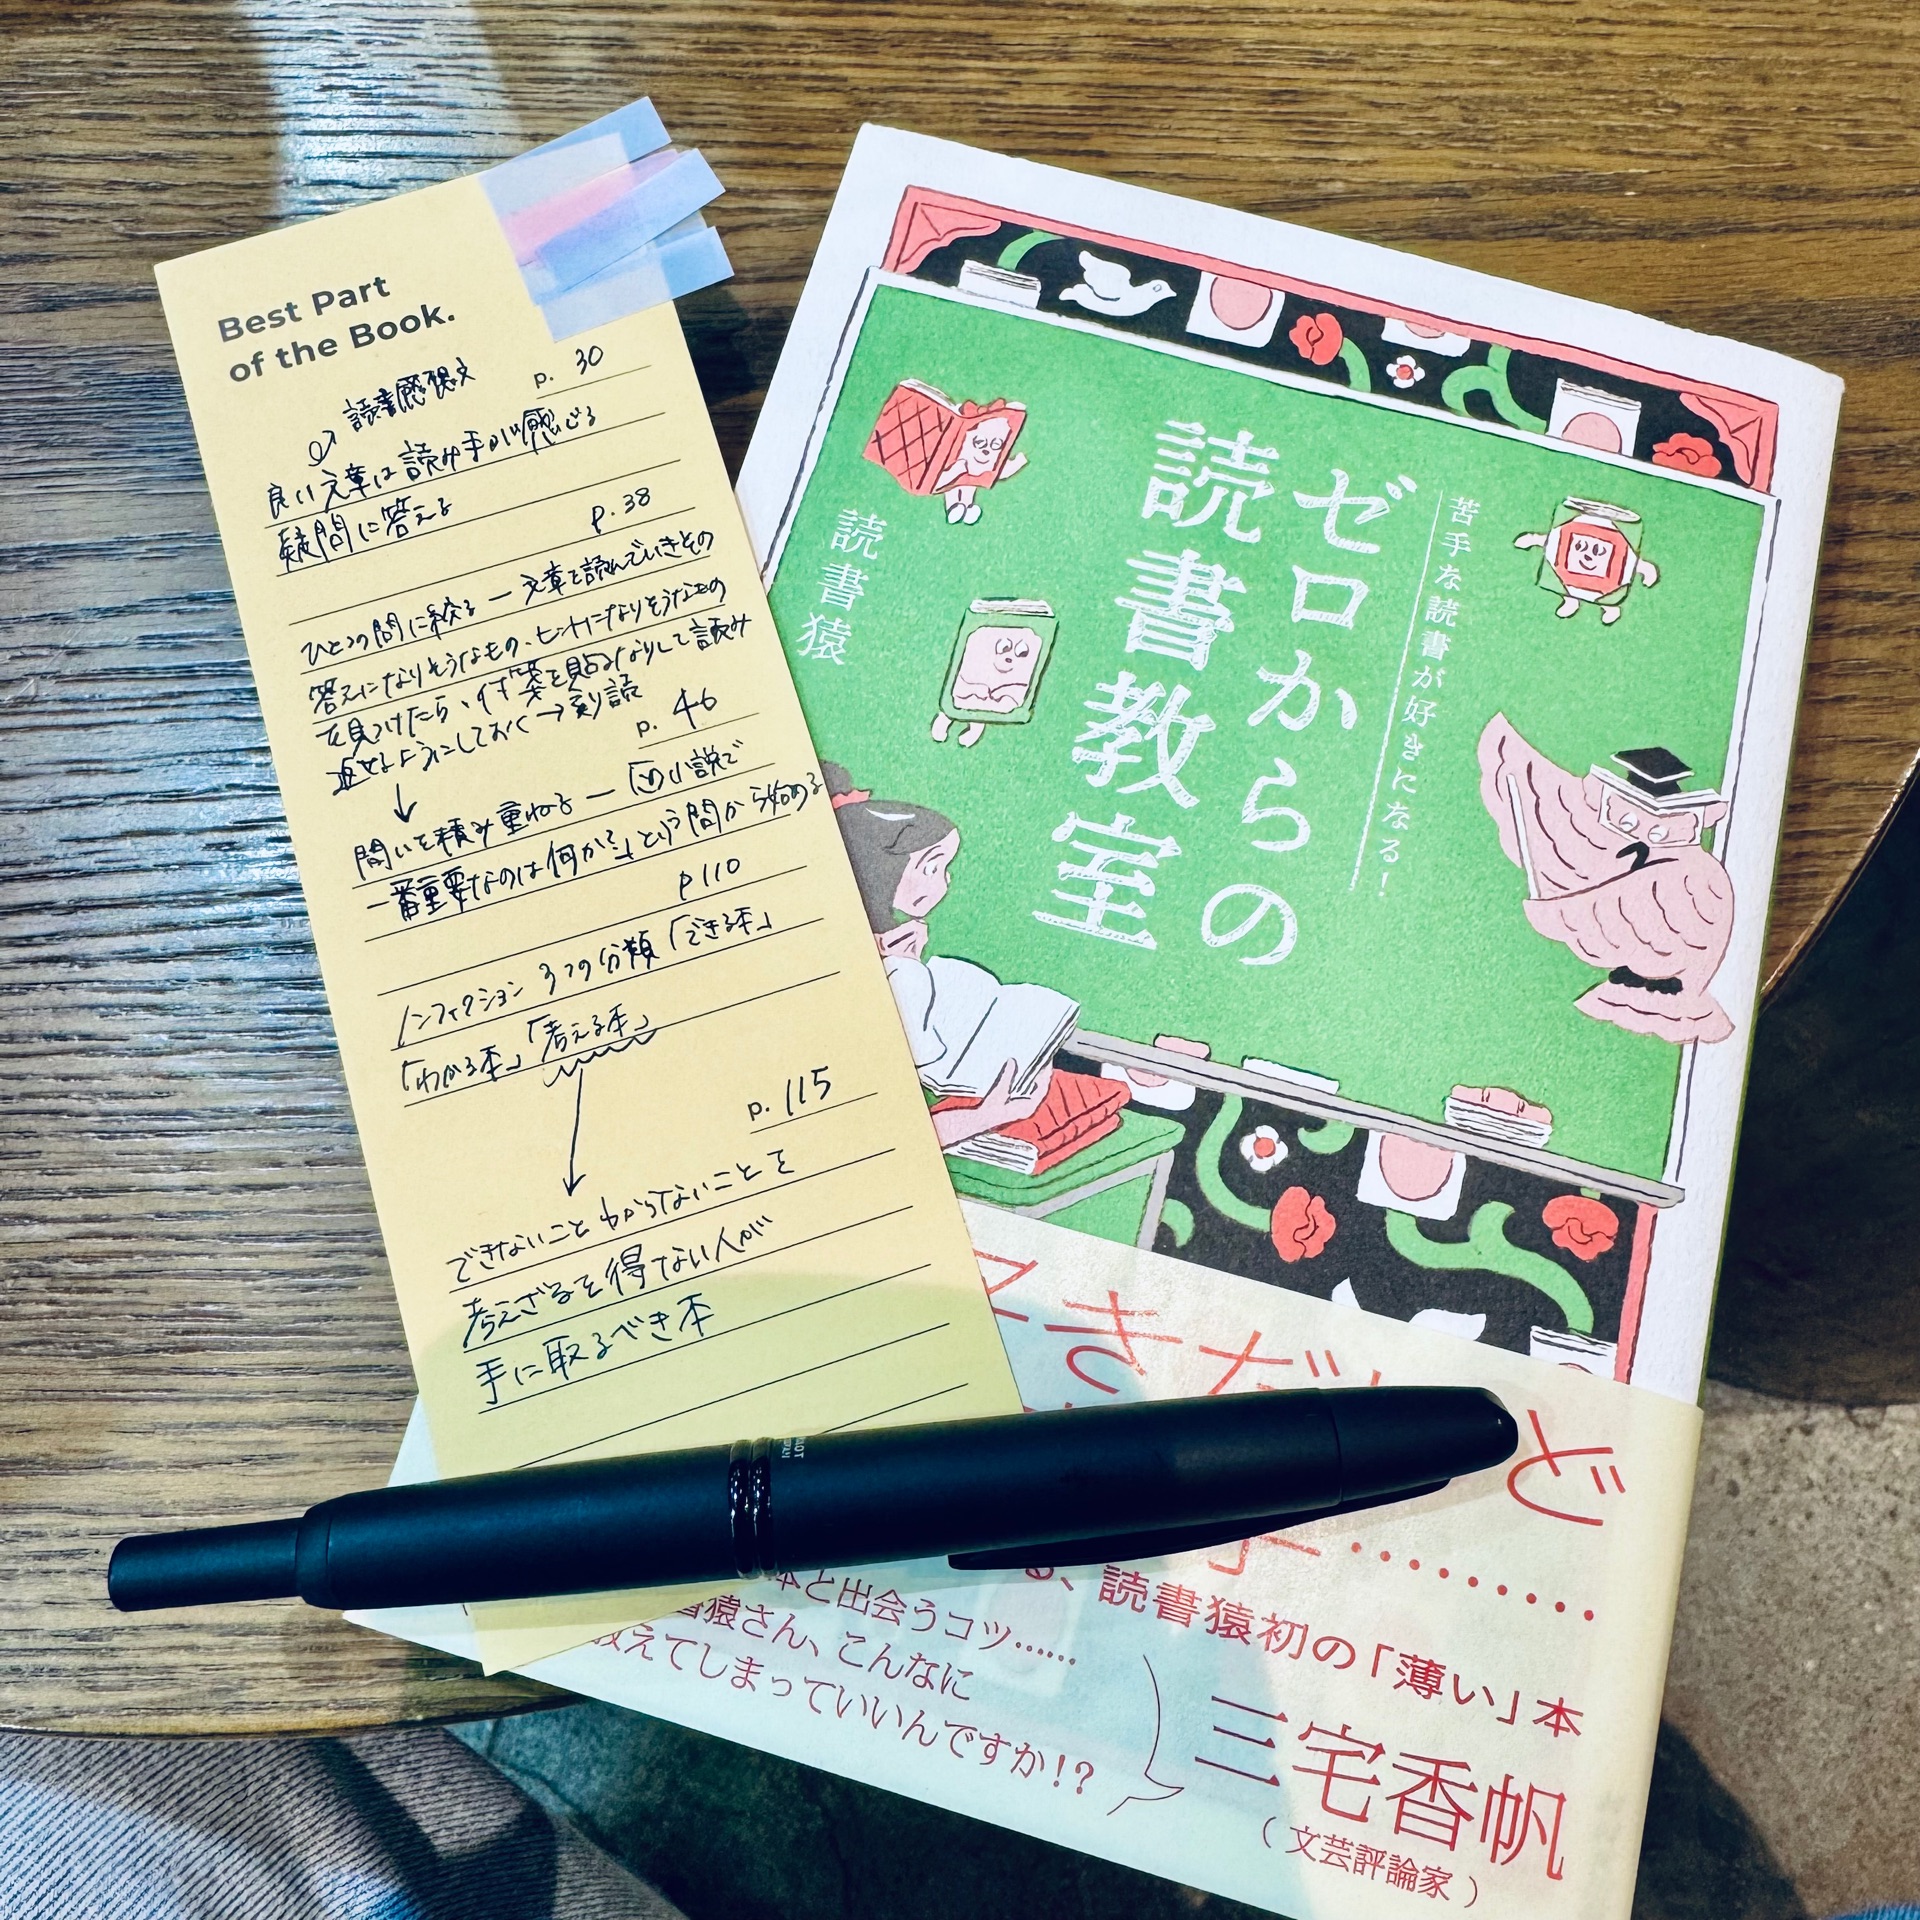 Best Part
of the Book.
p. 30
読書感想文
良い文章は読み手が感じる
疑問に答える
p. 38
ひとつの問に絞る ー 文章を読んでいきその
答えになりそうなもの、ヒントになりそうなもの
を見つけたら、付箋を貼るなりして読み
返せるようにしておく → 刻読
p. 46
問いを積み重ねる ー 「この小説で
一番重要なのは何か?」という問から始める
p 110
ノンフィクション 3つの分類「できる本」
「わかる本」「考える本」
p. 115
できないこと わからないことを
考えざるを得ない人が
手に取るべき本
苦手な読書が好きになる!
ゼロからの
読書教室
読書猿
、読書猿初の「薄い」本
本と出会うコツ……
書猿さん、こんなに
教えてしまっていいんですか!?
三宅香帆
(文芸評論家)